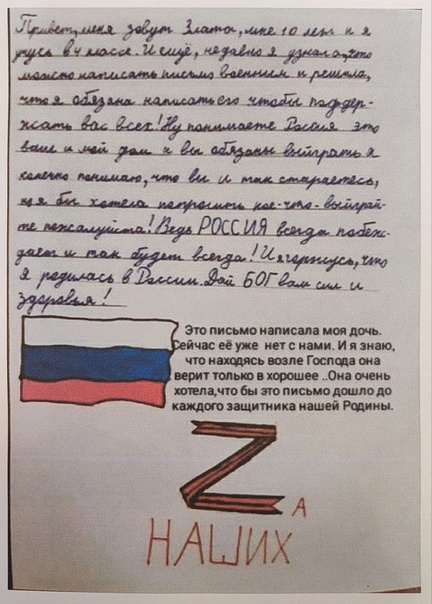 Привет, меня зовут Злата, мне 10 лет и я
учусь в 4 классе. И ещё, недавно я узнала, что
можно написать письмо военным и решила,
что я обязана написать его чтобы поддер-
жать вас всех! Ну понимаете Россия это
ваш и мой дом и вы обязаны выиграть я
конечно понимаю, что вы и так стараетесь,
но я бы хотела попросить кое-что-выиграй-
те пожалуйста! Ведь РОССИЯ всегда побеж-
дает и так будет всегда! И я горжусь, что
я родилась в России. Дай БОГ вам сил и
здоровья!
Это письмо написала моя дочь.
Сейчас её уже нет с нами. И я знаю,
что находясь возле Господа она
верит только в хорошее ..Она очень
хотела,что бы это письмо дошло до
каждого защитника нашей Родины.
Z А
НАШИХ